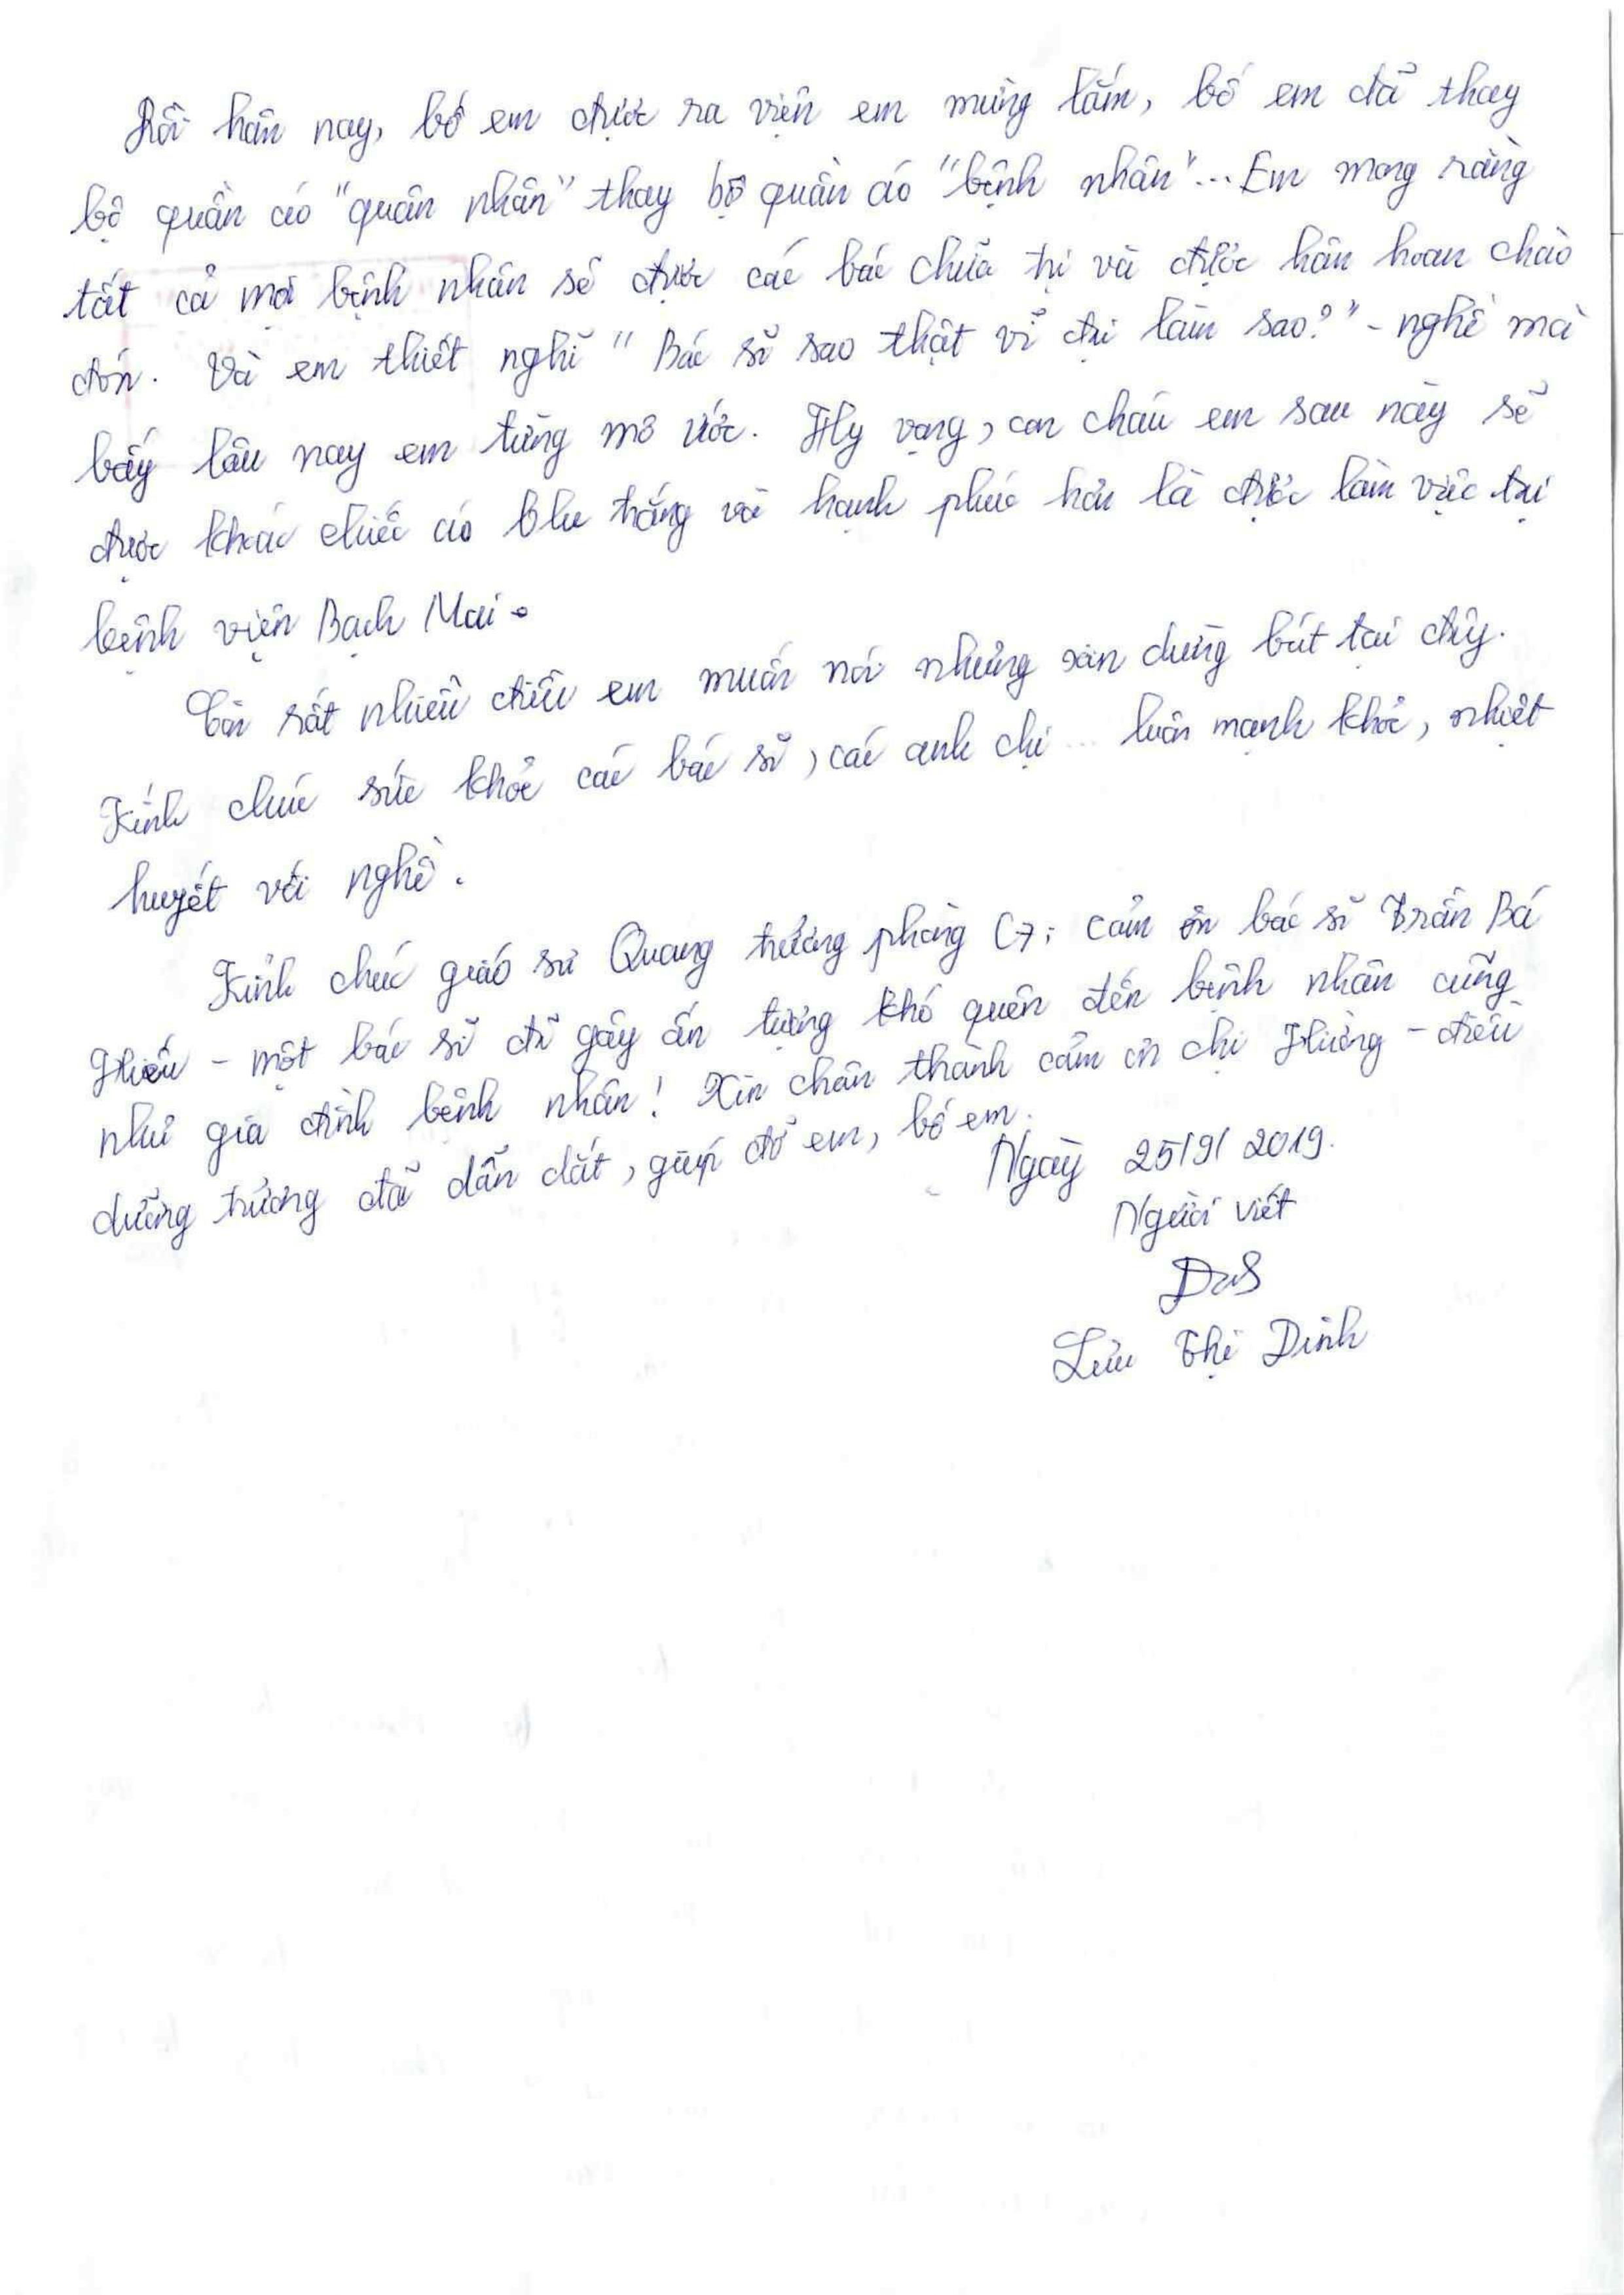 Rồi hôm nay, bố em được ra viện em mừng lắm, bố em đã thay
bộ quần áo "quân nhân" thay bộ quần áo "bệnh nhân"... Em mong rằng
tất cả mọi bệnh nhân sẽ được các bác chữa trị và được hân hoan chào
đón. Và em thiết nghĩ "Bác sĩ sao thật vĩ đại làm sao?" - nghề mà
bấy lâu nay em từng mơ ước. Hy vọng, con cháu em sau này sẽ
được khoác chiếc áo blu trắng và hạnh phúc hơn là được làm việc tại
bệnh viện Bạch Mai.
Còn rất nhiều điều em muốn nói nhưng xin dừng bút tại đây.
Kính chúc sức khỏe các bác sĩ, các anh chị ... luôn mạnh khỏe, nhiệt
huyết với nghề.
Kính chúc giáo sư Quang trưởng phòng C7; cảm ơn bác sĩ Trần Bá
Hiếu - một bác sĩ đã gây ấn tượng khó quên đến bệnh nhân cũng
như gia đình bệnh nhân! Xin chân thành cảm ơn chị Hường - điều
dưỡng trưởng đã dẫn dắt, giúp đỡ em, bố em.
Ngày 25/9/2019.
Người viết
Lưu Thị Dinh